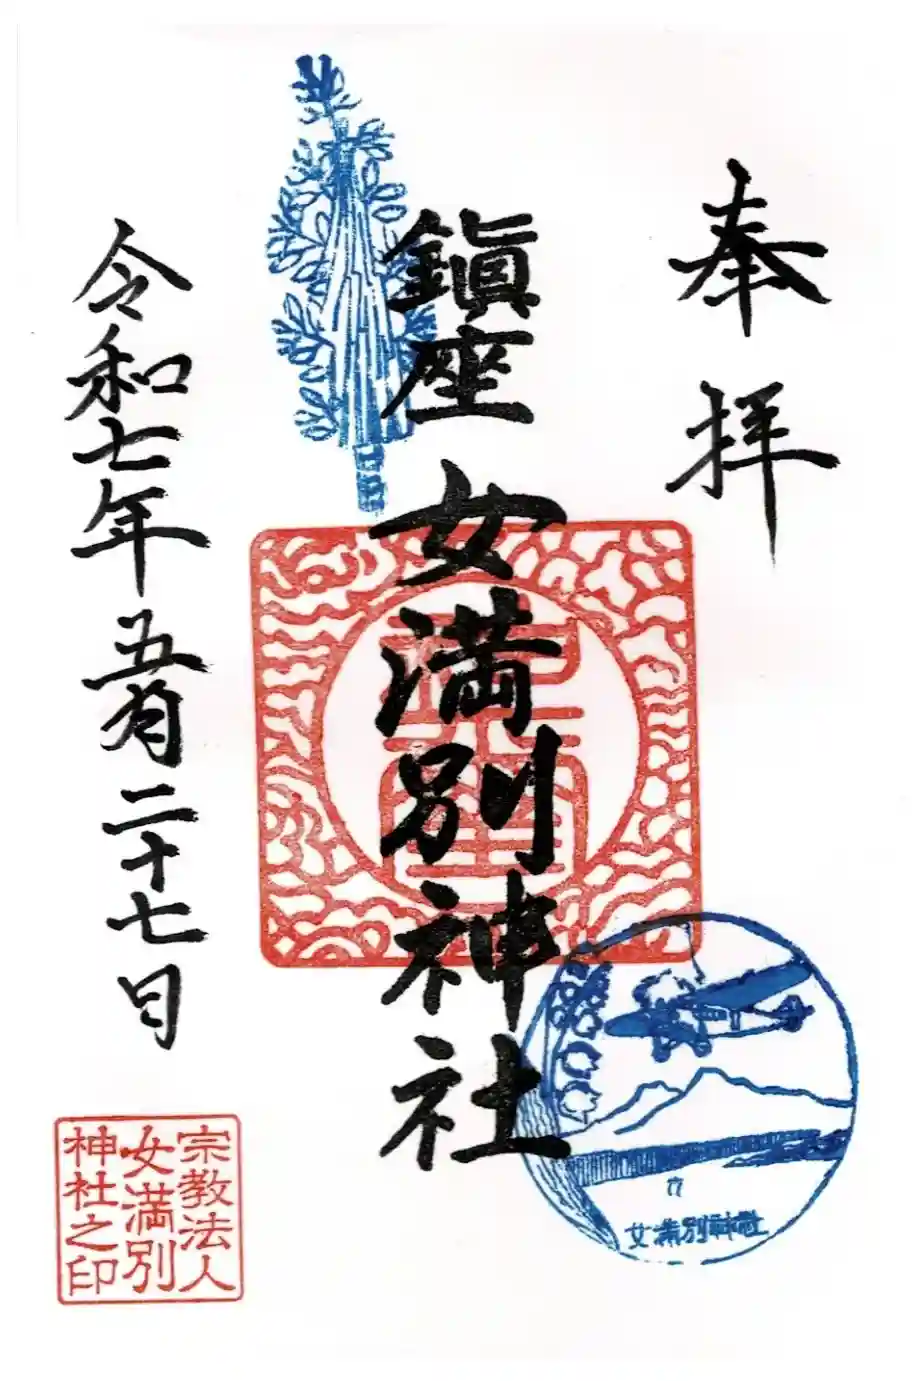 奉拝
鎭座 女満別神社
令和七年五月二十七日
女満別神社
宗教法人
女満別
神社之印